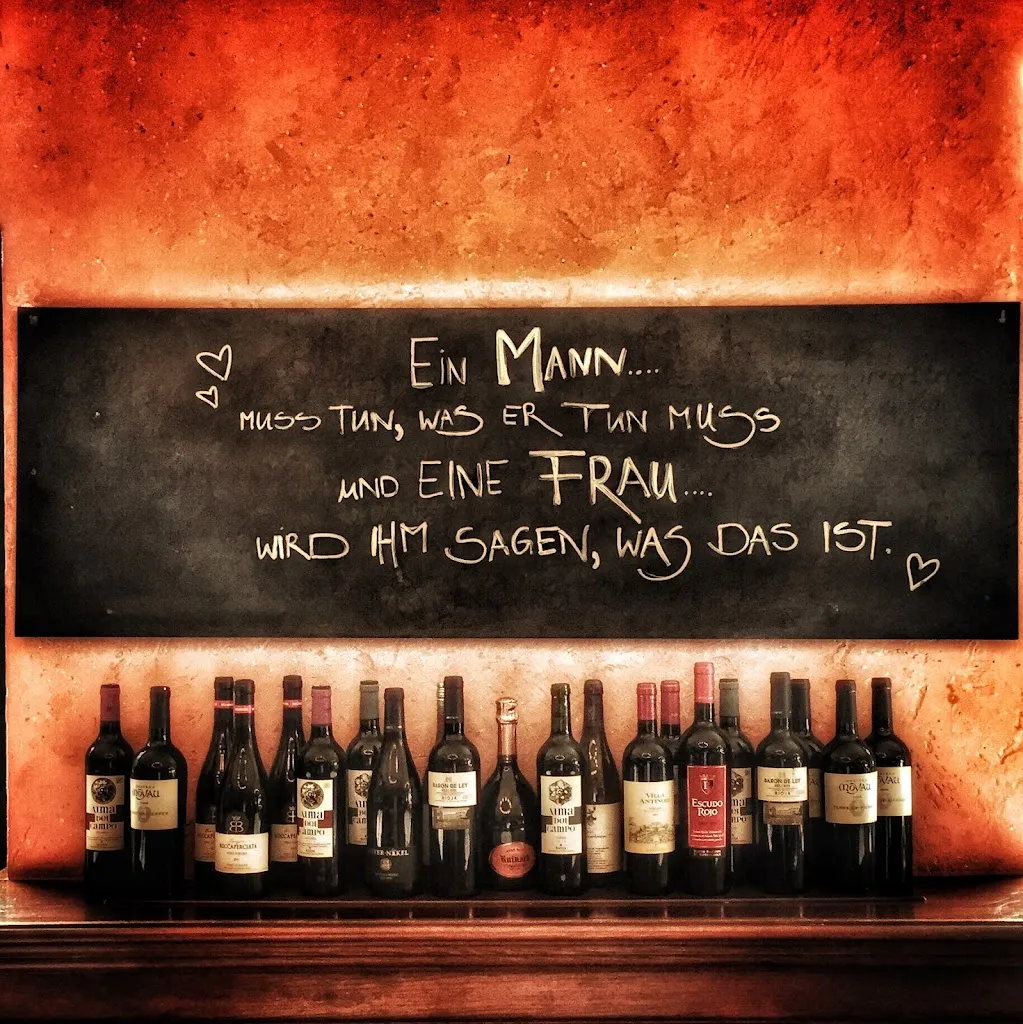 Ein Mann....
muss tun, was er tun muss
und eine Frau....
wird ihm sagen, was das ist.
ALMA DEL CAMPO
MOVAU
ROCCAPERCIATA
ALMA DEL CAMPO
BARON DE LEY
RIOJA
Ruinart
ALMA DEL CAMPO
VILLA ANTINORI
ESCUDO ROJO
BARON DE LEY
RIOJA
MOVAU